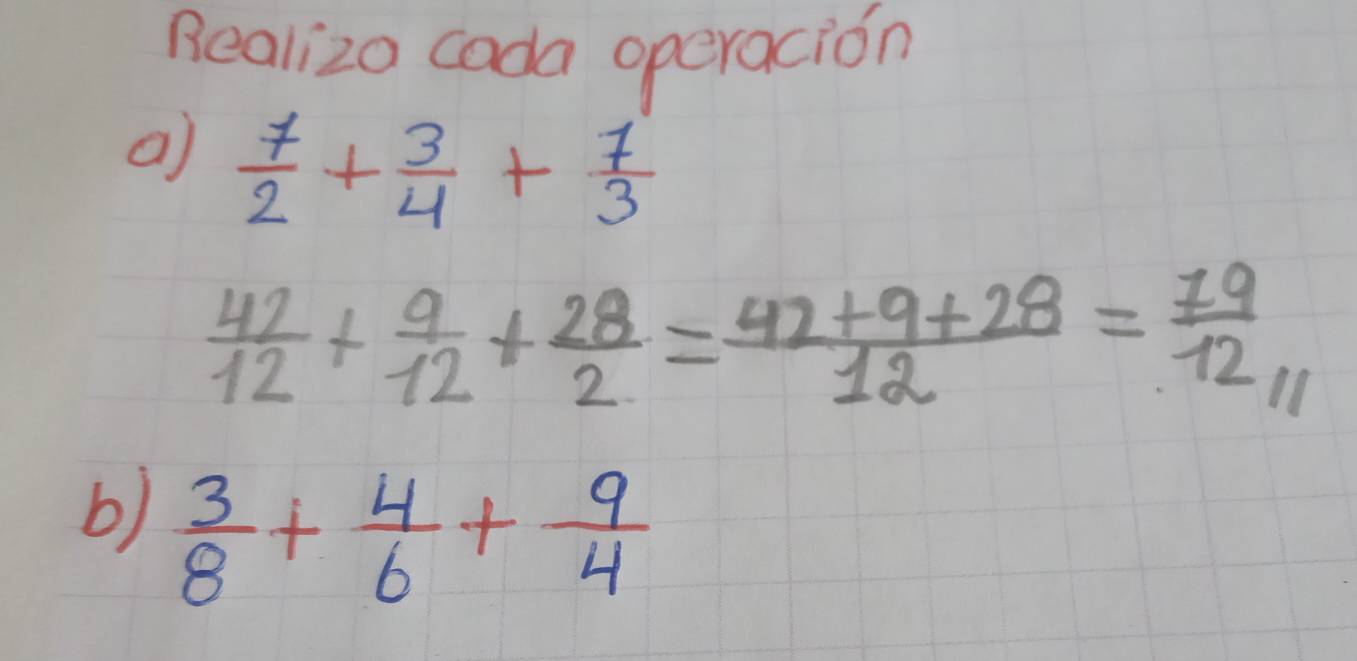 Realizo cada operación
a) 7/2 + 3/4 + 7/3
42/12 + 9/12 + 28/2 = 42+9+28/12 = 79/12 //
b) 3/8 + 4/6 + 9/4